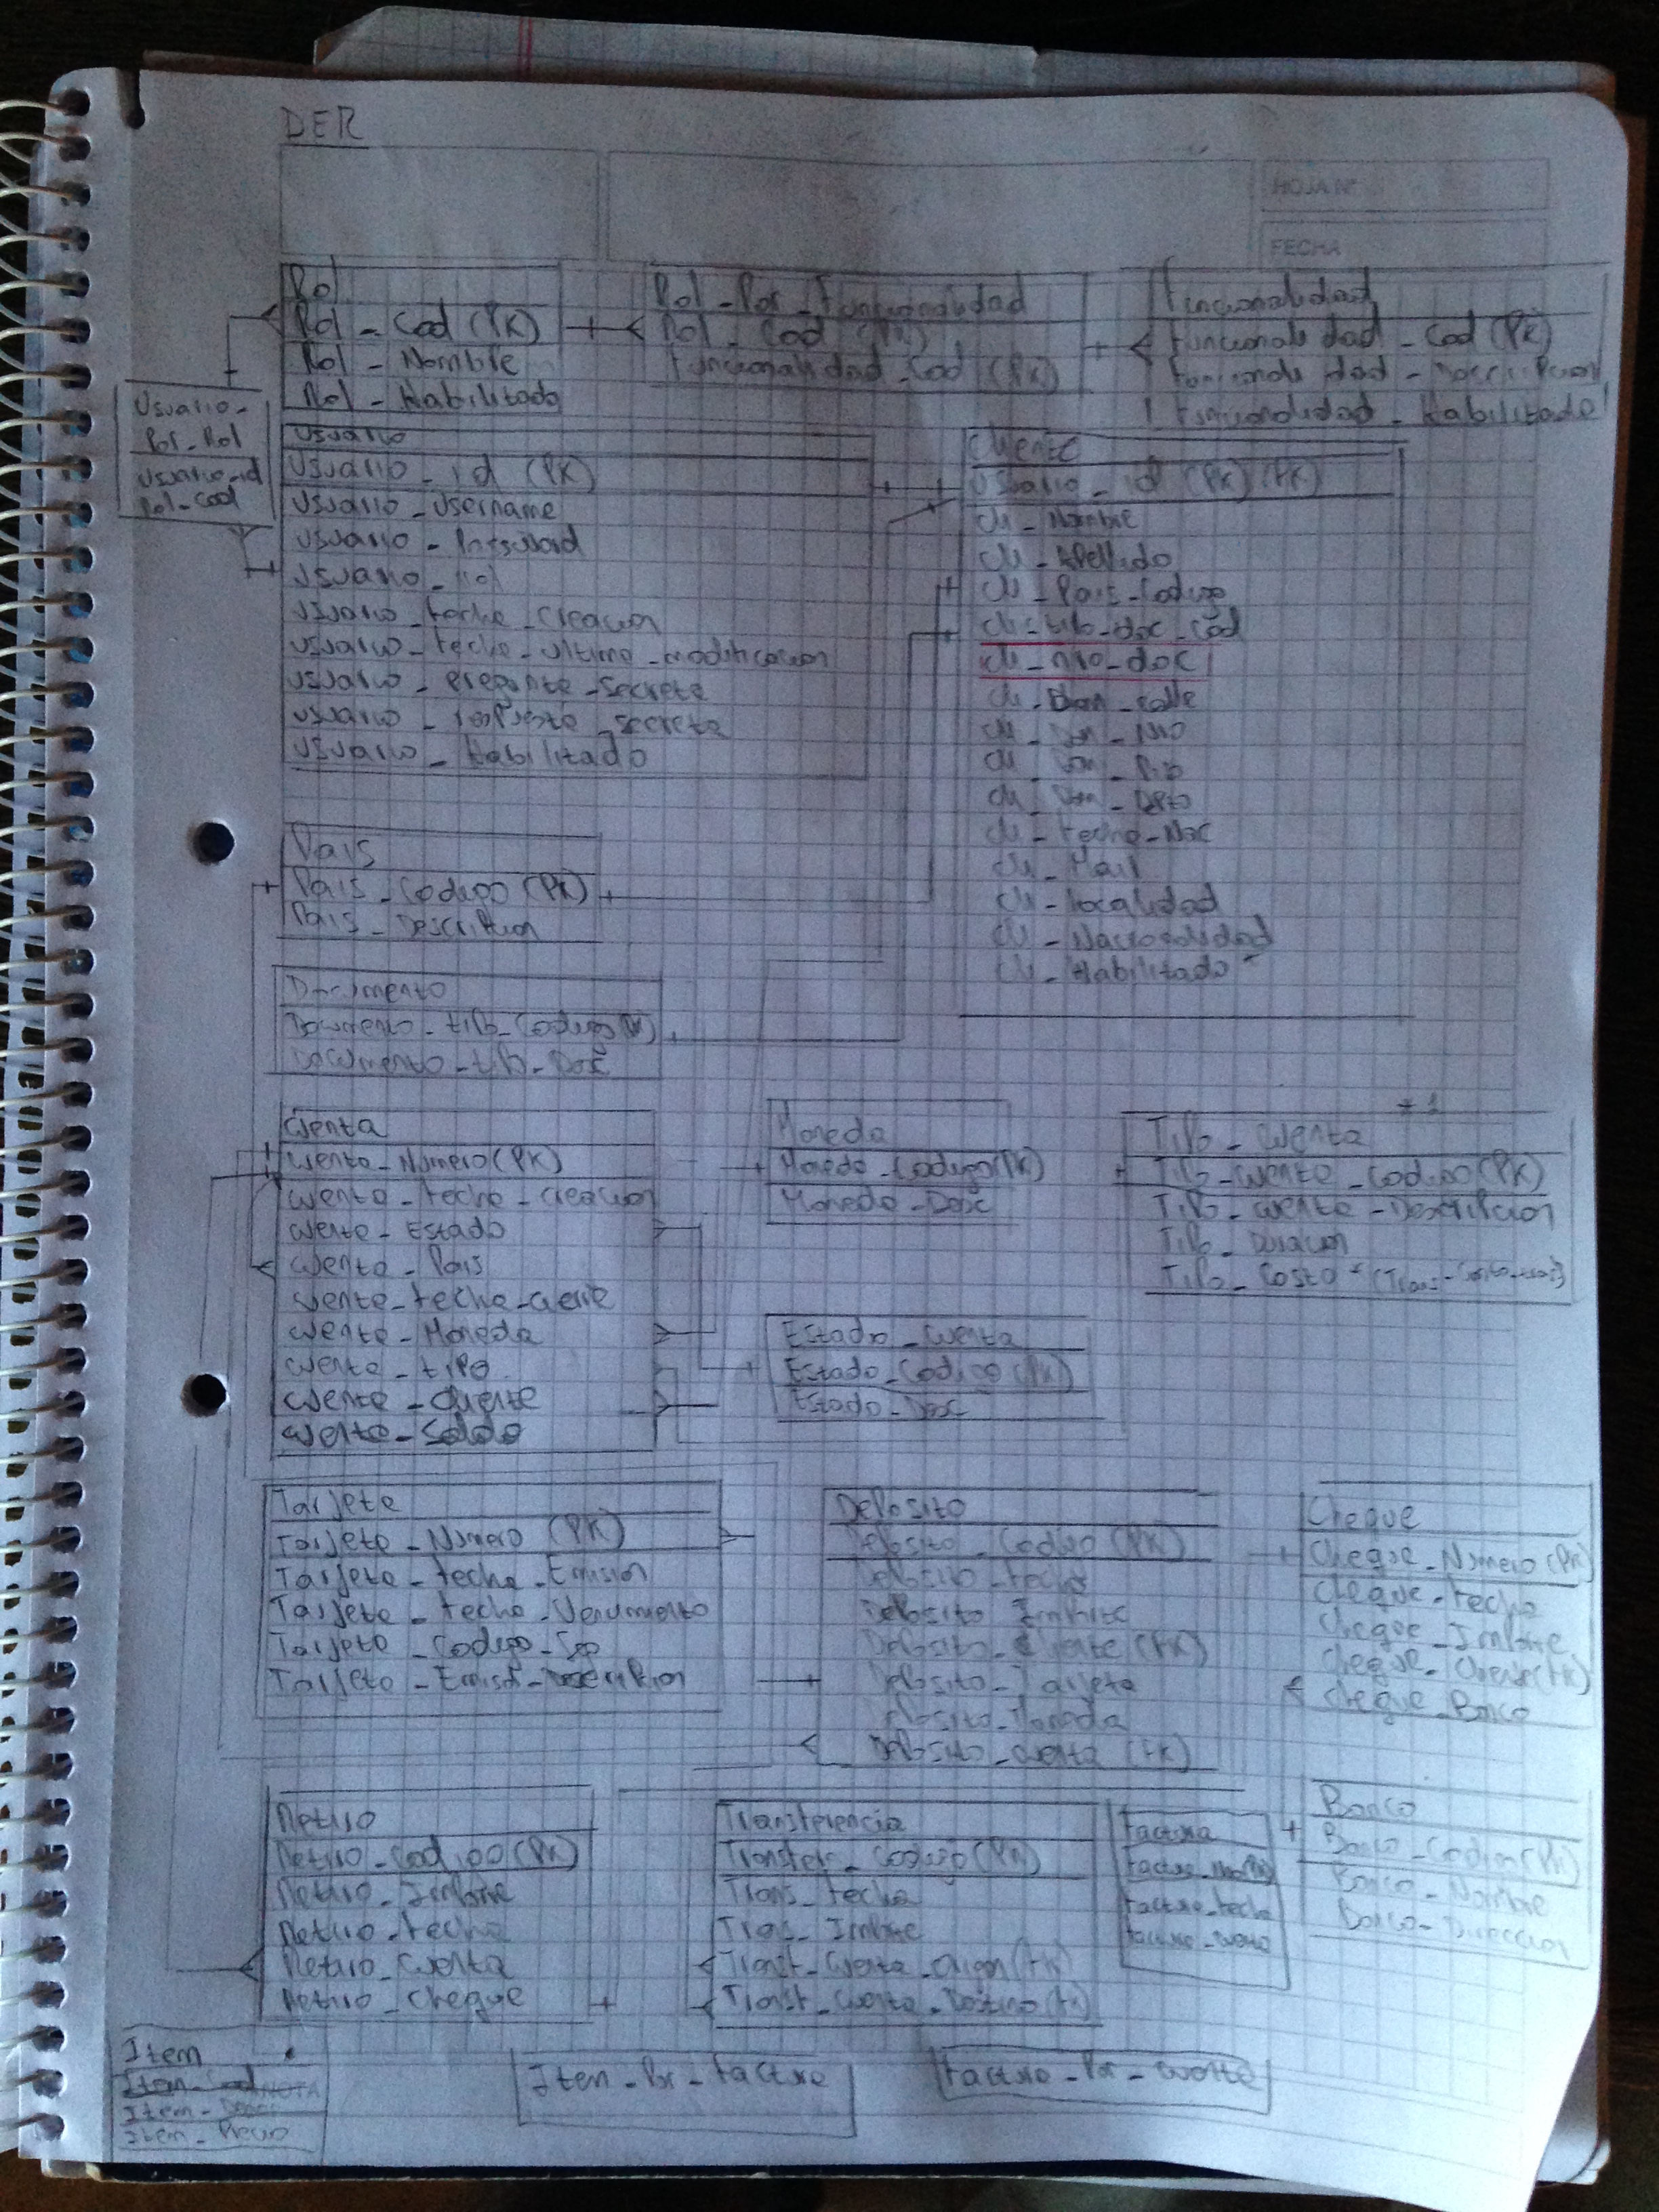 DER
HOJA N°
FECHA
Rol
Rol - Cod (PK)
Rol - Nombre
Rol - Habilitado
Rol - Por - Funcionalidad
Rol - Cod (PK)
Funcionalidad - Cod (PK)
Funcionalidad
Funcionalidad - Cod (PK)
Funcionalidad - Descripcion
Funcionalidad - Habilitado
Usuario -
Por - Rol
Usuario - id
Rol - Cod
Usuario
Usuario - id (PK)
Usuario - Username
Usuario - Password
Usuario - rol
Usuario - fecha - creacion
Usuario - fecha - ultima - modificacion
Usuario - pregunta - secreta
Usuario - respuesta - secreta
Usuario - Habilitado
Cliente
Usuario - id (PK) (FK)
Cli - Nombre
Cli - Apellido
Cli - Pais - Codigo
Cli - tipo - doc - cod
Cli - nro - doc
Cli - Dom - calle
Cli - Dom - Nro
Cli - Dom - Piso
Cli - Dom - Dpto
Cli - fecha - Nac
Cli - Mail
Cli - Localidad
Cli - Nacionalidad
Cli - Habilitado
Pais
Pais - Codigo (PK)
Pais - Descripcion
Documento
Documento - tipo - Codigo (PK)
Documento - tipo - Desc
Cuenta
Cuenta - Numero (PK)
Cuenta - fecha - creacion
Cuenta - Estado
Cuenta - Pais
Cuenta - fecha - cierre
Cuenta - Moneda
Cuenta - tipo
Cuenta - cliente
Cuenta - Saldo
Moneda
Moneda - Codigo (PK)
Moneda - Desc
Tipo - Cuenta
Tipo - Cuenta - Codigo (PK)
Tipo - Cuenta - Descripcion
Tipo - Duracion
Tipo - Costo
Estado - Cuenta
Estado - Codigo (PK)
Estado - Desc
Tarjeta
Tarjeta - Numero (PK)
Tarjeta - fecha - Emision
Tarjeta - fecha - Vencimiento
Tarjeta - Codigo - Seg
Tarjeta - Emisor - Descripcion
Deposito
Deposito - Codigo (PK)
Deposito - fecha
Deposito - Importe
Deposito - Cliente (FK)
Deposito - Tarjeta
Deposito - Moneda
Deposito - Cuenta (FK)
Cheque
Cheque - Numero (PK)
Cheque - fecha
Cheque - Importe
Cheque - Cliente (FK)
Cheque - Banco
Retiro
Retiro - Codigo (PK)
Retiro - Importe
Retiro - fecha
Retiro - Cuenta
Retiro - Cheque
Transferencia
Transfer - Codigo (PK)
Trans - fecha
Tras - Importe
Transf - Cuenta - Origen (FK)
Transf - Cuenta - Destino (FK)
Factura
Factura - Nro (PK)
Factura - fecha
Banco
Banco - Codigo (PK)
Banco - Nombre
Banco - Direccion
Item
NOTA
Item - Desc
Item - Precio
Item - Por - Factura
Factura - Por - Cuenta